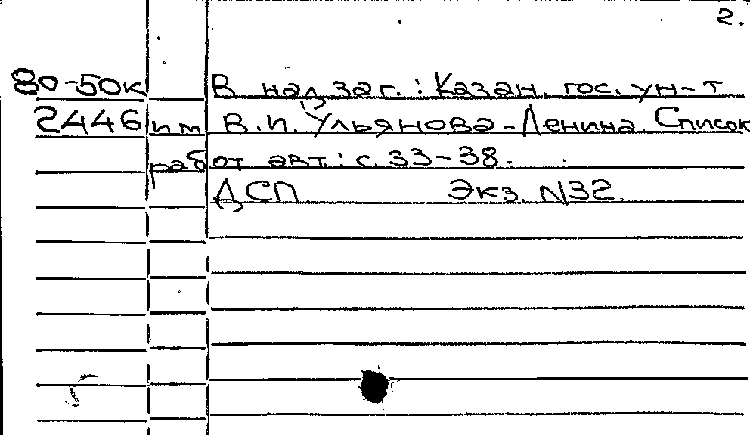 2.
80-50к В надзаг.: Казан. гос. ун-т
2446 им В.И. Ульянова-Ленина. Список
работ авт.: с. 33-38.
ДСП Экз. N32.